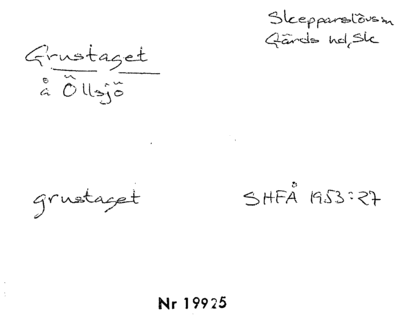 Skepparslövsm
Gärds hd, Sk
Grustaget
å Öllsjö
grustaget
SHFÅ 1953:27
Nr 19925